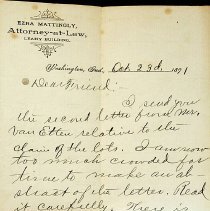 EZRA MATTINGLY,
Attorney-at-Law,
LEARY BUILDING.
Washington, Ind. Oct 23d. 1891
Dear Friend:-
I send you
the second letter from Mr.
Van Etten relative to the
claim of the lots. I am now
too much crowded for
time to make an ab-
stract of the letter. Read
it carefully. There is